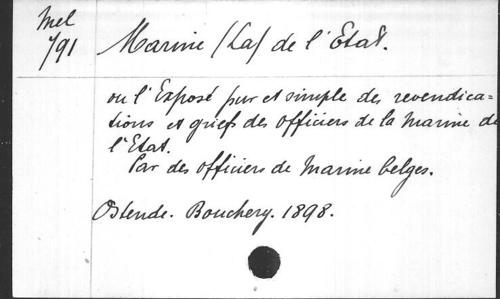 Mel
791
Marine (La) de l'Etat.
ou l'Exposé pur et simple des revendica=
tions et griefs des officiers de la Marine de
l'Etat.
Par des officiers de Marine belges.
Ostende. Bouchery. 1898.